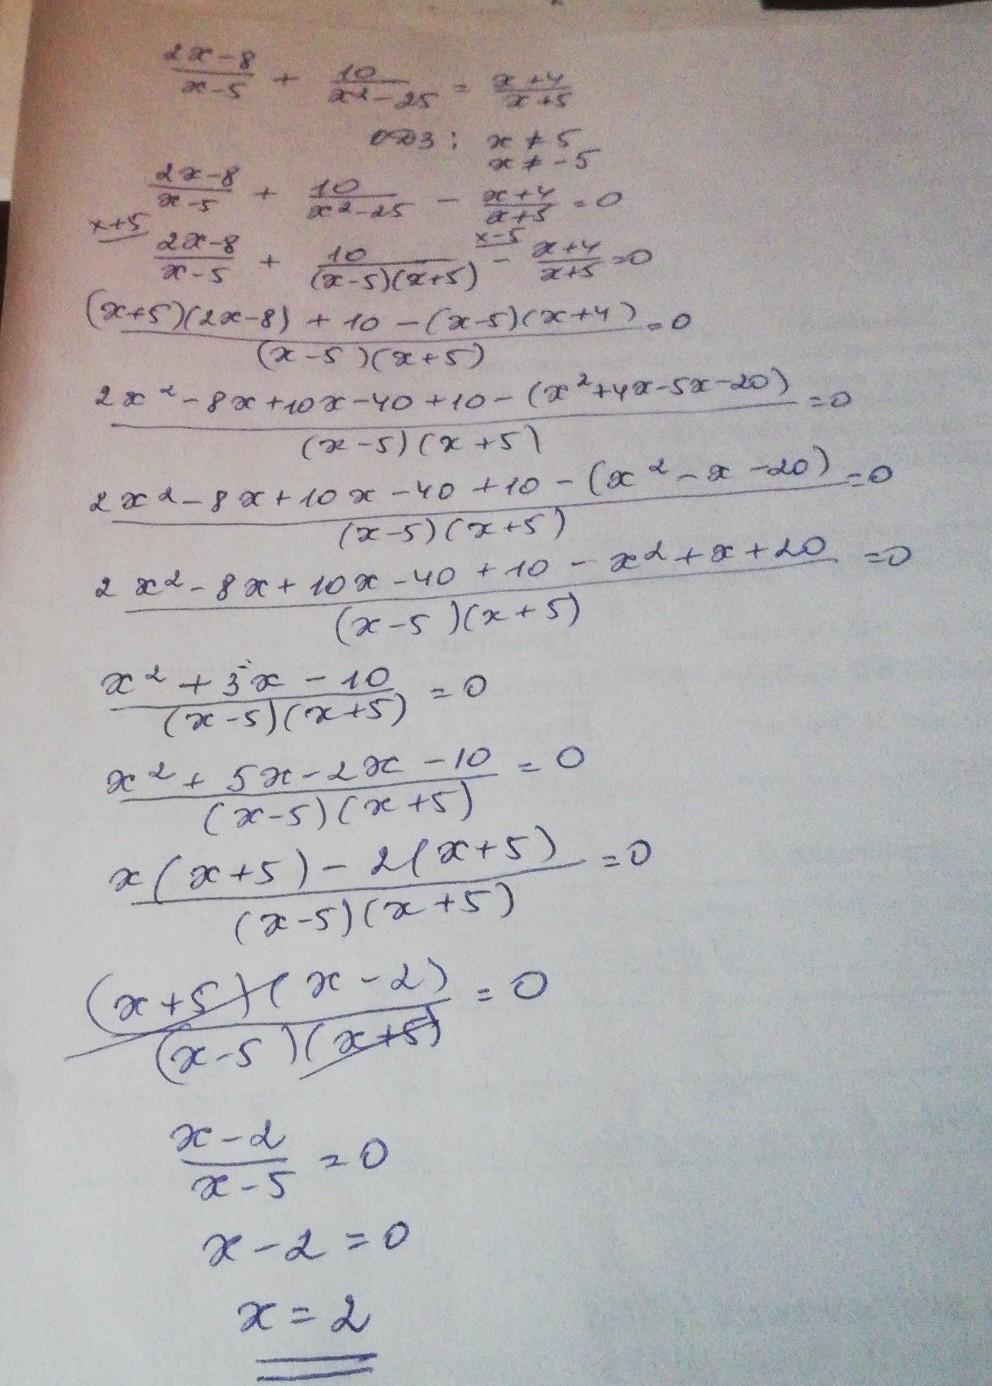 (2x-8)/(x-5) + 10/(x²-25) = (x+4)/(x+5)
ОДЗ: x ≠ 5
x ≠ -5
(2x-8)/(x-5) + 10/(x²-25) - (x+4)/(x+5) = 0
x+5 (2x-8)/(x-5) + 10/((x-5)(x+5)) - x-5 (x+4)/(x+5) = 0
((x+5)(2x-8) + 10 - (x-5)(x+4))/((x-5)(x+5)) = 0
(2x²-8x+10x-40+10-(x²+4x-5x-20))/((x-5)(x+5)) = 0
(2x²-8x+10x-40+10-(x²-x-20))/((x-5)(x+5)) = 0
(2x²-8x+10x-40+10-x²+x+20)/((x-5)(x+5)) = 0
(x²+3x-10)/((x-5)(x+5)) = 0
(x²+5x-2x-10)/((x-5)(x+5)) = 0
(x(x+5)-2(x+5))/((x-5)(x+5)) = 0
((x+5)(x-2))/((x-5)(x+5)) = 0
(x-2)/(x-5) = 0
x-2=0
x=2